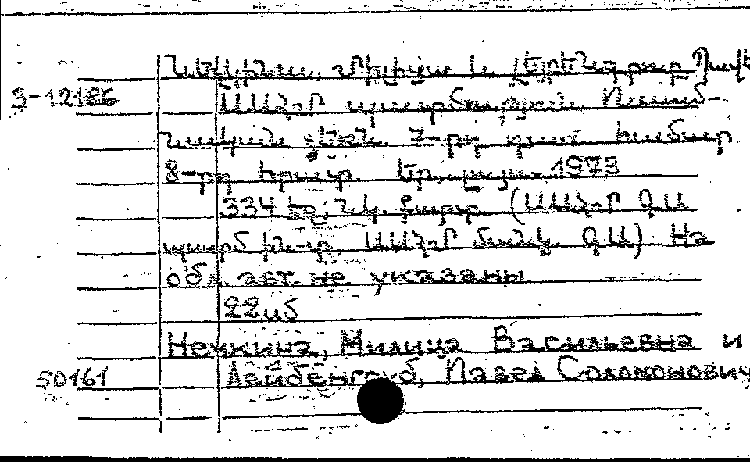 Նեչկինա, Միլիցա և Լեյբենգրուբ Պավե
3-12186
ՍՍՀՄ պատմություն. Ուսում-
նական ձեռն. 7-րդ դաս. համար
8-րդ հրատ. Եր., 1973
334 էջ, նկ., քարտ. (ՍՍՀՄ ԳԱ
պատմ. ին-տ. ՍՍՀՄ մանկ. ԳԱ) На
обл. авт. не указаны
22
Нечкина, Милица Васильевна и
50161
Лейбенгруб, Павел Соломонович